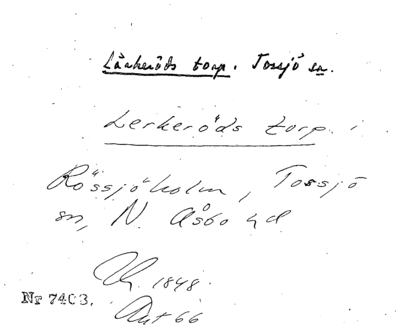 Lärkeröds torp. Tossjö sn.
Lerkeröds torp i
Rössjöholm, Tossjö
sn, N. Åsbo hd
1848.
Nr 7403.